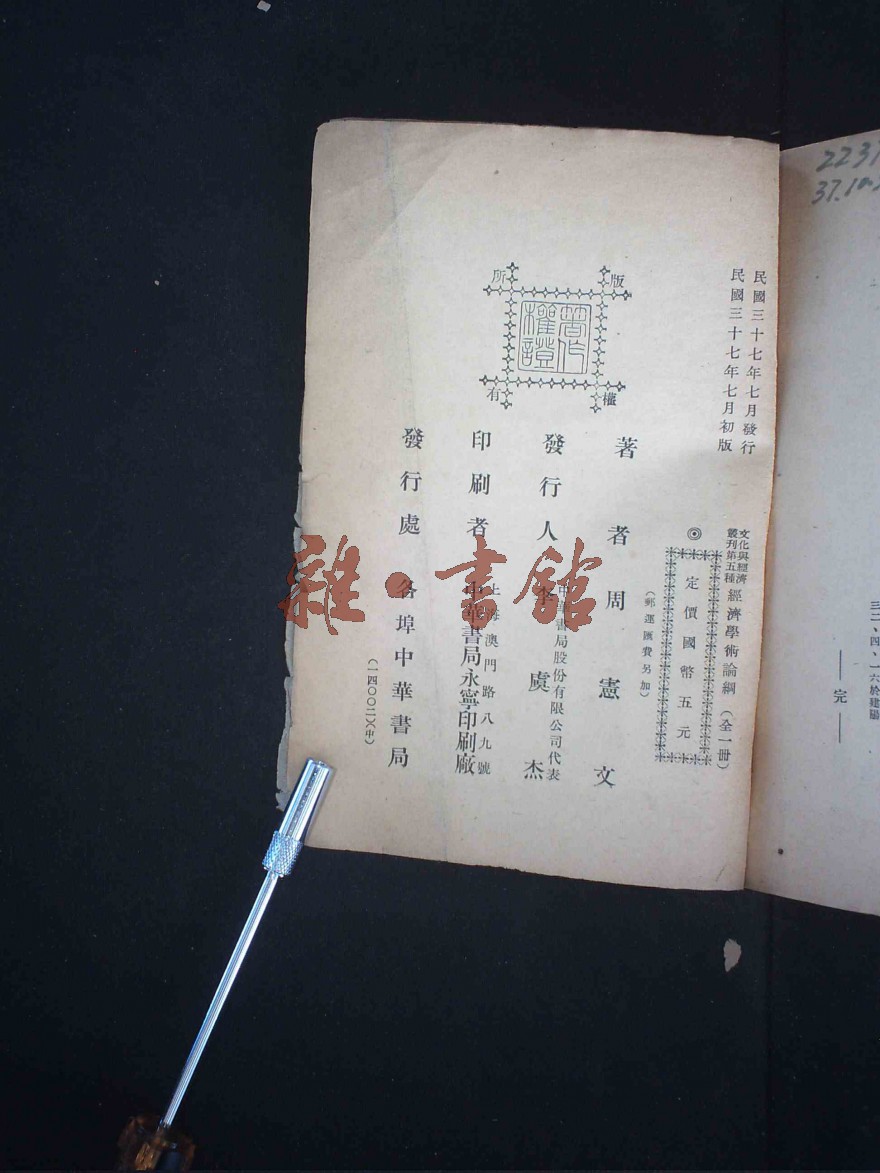 民國三十七年七月發行
民國三十七年七月初版
文化與經濟
叢刊第五種
經濟學術論綱（全一冊）
◎定價國幣五元
（郵運匯費另加）
版權所有
著作權證
著者 周憲文
發行人 李虞杰
中華書局股份有限公司代表
印刷者 中華書局永寧印刷廠
上海澳門路八九號
發行處 各埠中華書局
（一四〇〇二）（中）
三二、四、一六於建陽
——完——
雜·書館